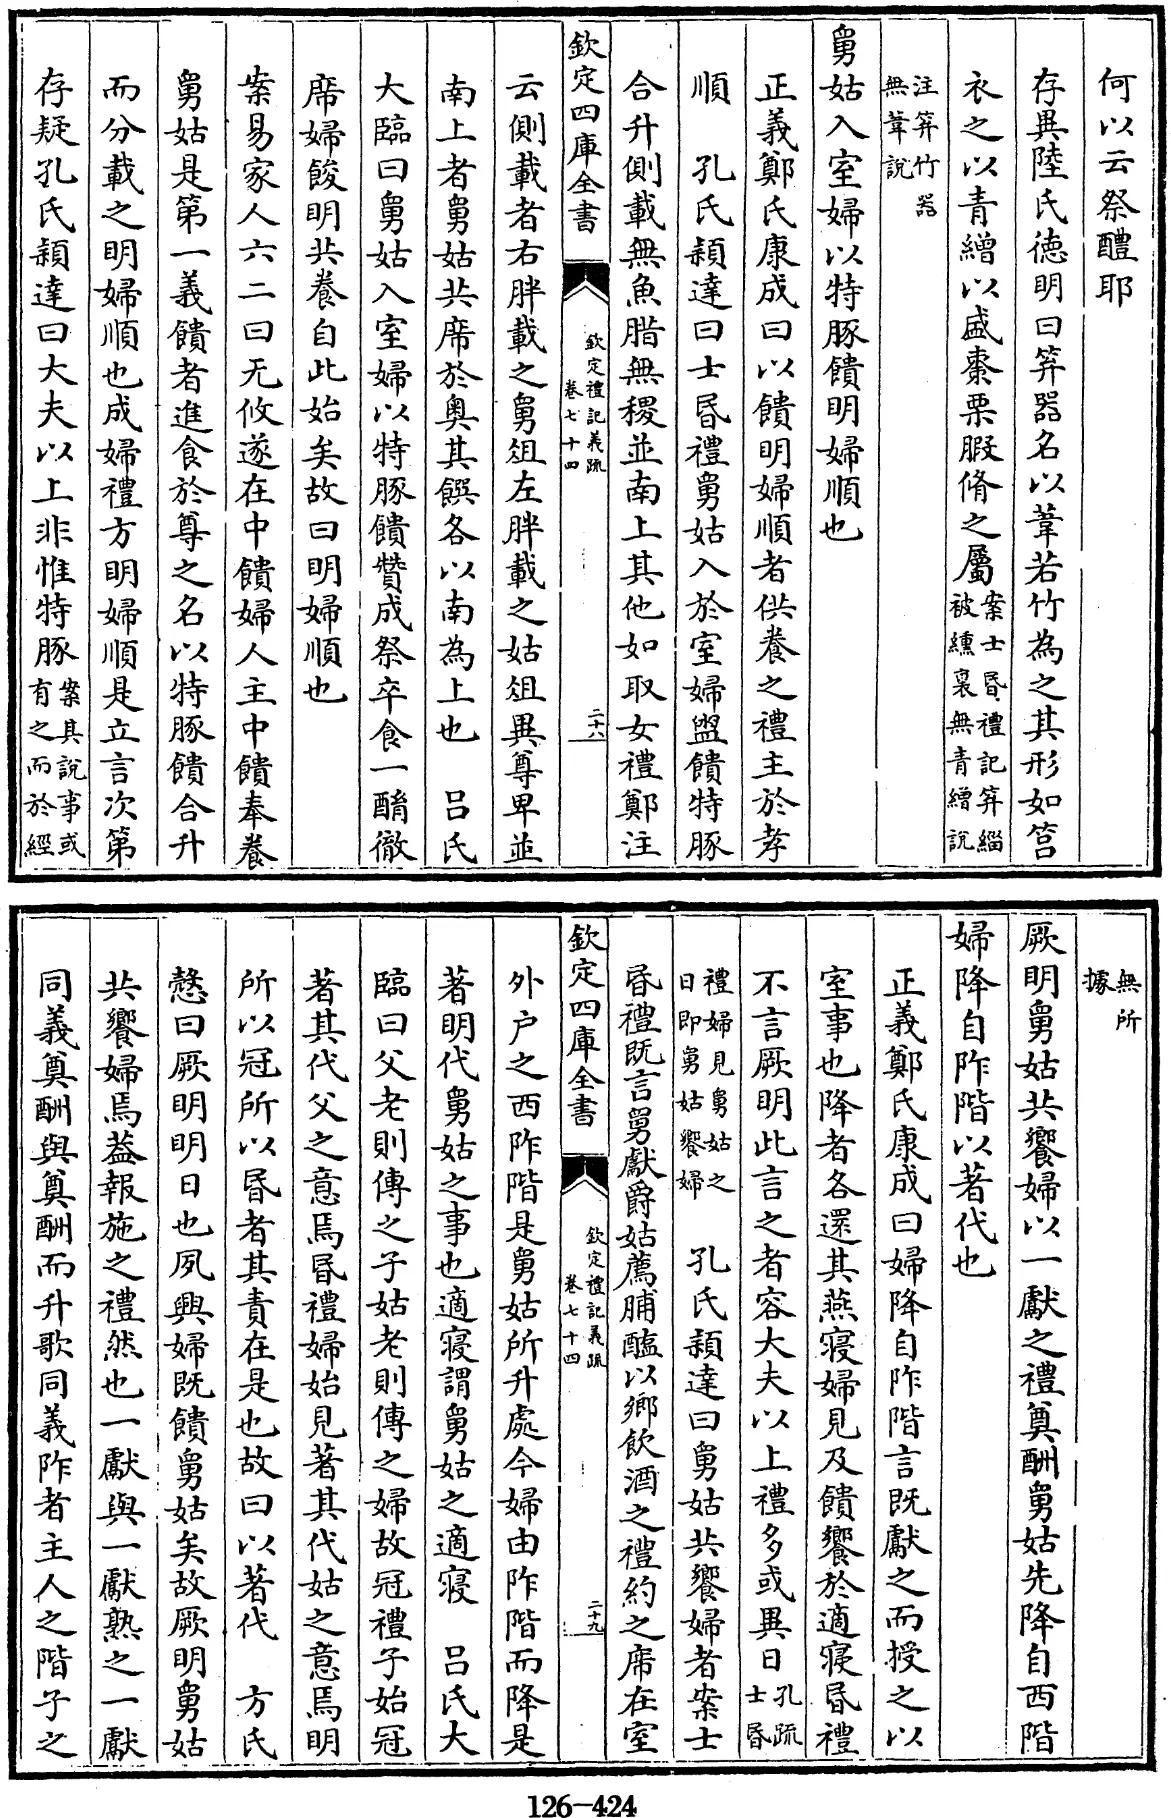 何以云祭醴耶
存異陸氏徳明曰笲器名以葦若竹為之其形如筥
衣之以青繒以盛棗栗腶脩之屬案士昏禮記笲緇
被纁裏無青繒說
注笲竹器
無葦說
舅姑入室婦以特豚饋明婦順也
正義鄭氏康成曰以饋明婦順者供養之禮主於孝
順　孔氏頴達曰士昏禮舅姑入於室婦盥饋特豚
合升側載無魚腊無稷並南上其他如取女禮鄭注
欽定四庫全書
欽定禮記義疏
卷七十四
二十八
云側載者右胖載之舅俎左胖載之姑俎異尊卑並
南上者舅姑共席於奥其饌各以南為上也　呂氏
大臨曰舅姑入室婦以特豚饋贊成祭卒食一酳徹
席婦餕明共養自此始矣故曰明婦順也
案易家人六二曰无攸遂在中饋婦人主中饋奉養
舅姑是第一義饋者進食於尊之名以特豚饋合升
而分載之明婦順也成婦禮方明婦順是立言次第
存疑孔氏頴達曰大夫以上非惟特豚案其說事或
有之而於經
無所
據
厥明舅姑共饗婦以一獻之禮奠酬舅姑先降自西階
婦降自阼階以著代也
正義鄭氏康成曰婦降自阼階言既獻之而授之以
室事也降者各還其燕寢婦見及饋饗於適寢昏禮
不言厥明此言之者容大夫以上禮多或異日孔疏
士昏
禮婦見舅姑之
日即舅姑饗婦　孔氏頴達曰舅姑共饗婦者案士
昏禮既言舅獻爵姑薦脯醢以鄉飲酒之禮約之席在室
欽定四庫全書
欽定禮記義疏
卷七十四
二十九
外户之西阼階是舅姑所升處今婦由阼階而降是
著明代舅姑之事也適寢謂舅姑之適寢　呂氏大
臨曰父老則傳之子姑老則傳之婦故冠禮子始冠
著其代父之意焉昏禮婦始見著其代姑之意焉明
所以冠所以昏者其責在是也故曰以著代　方氏
慤曰厥明明日也夙興婦既饋舅姑矣故厥明舅姑
共饗婦焉葢報施之禮然也一獻與一獻熟之一獻
同義奠酬與奠酬而升歌同義阼者主人之階子之
126-424